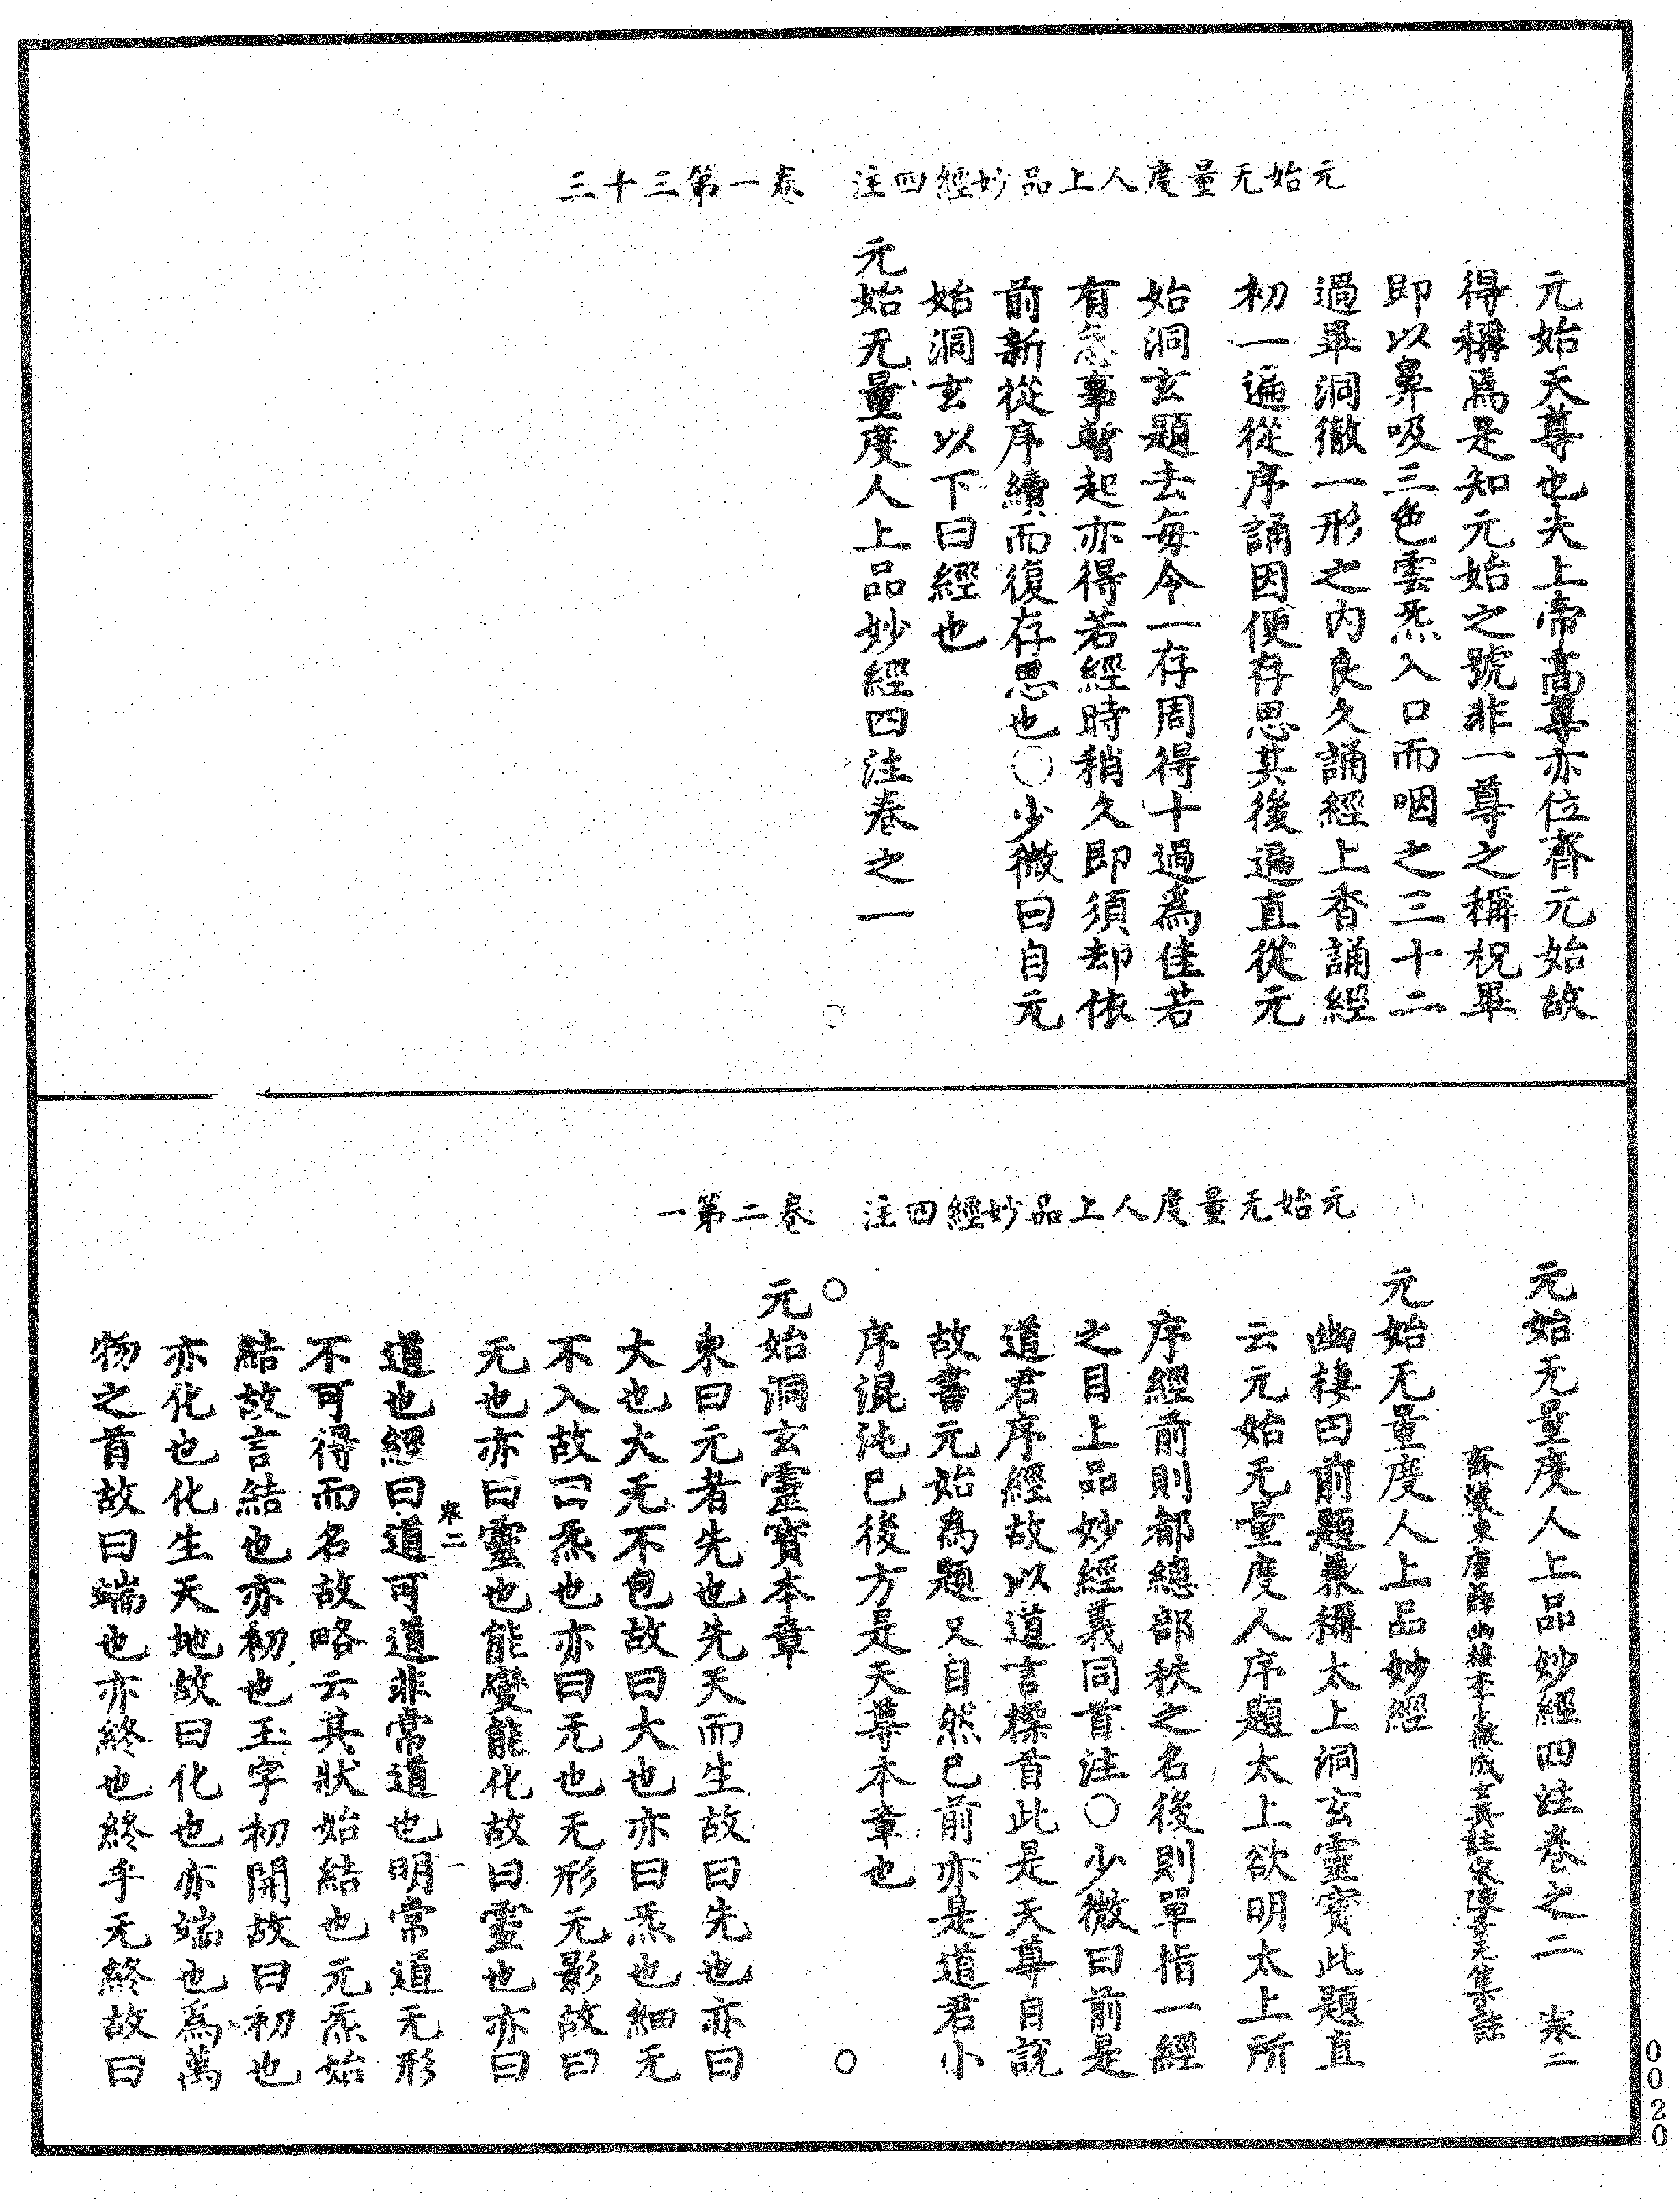 元始无量度人上品妙經四注　卷一第三十三
元始天尊也夫上帝高尊亦位齊元始故
得稱爲是知元始之號非一尊之稱祝畢
即以鼻吸三色雲炁入口而咽之三十二
過畢洞徹一形之內良久誦經上香誦經
初一遍從序誦因便存思其後遍直從元
始洞玄題去每令一存周得十過爲佳若
有急事暫起亦得若經時稍久即須却依
前新從序續而復存思也○少微曰自元
始洞玄以下曰經也
元始无量度人上品妙經四注卷之一
元始无量度人上品妙經四注　卷二第一
元始无量度人上品妙經四注卷之二　寒二
齊嚴東唐薛幽棲李少微成玄英註宋陳景元集註
元始无量度人上品妙經
幽棲曰前題兼稱太上洞玄靈寶此題直
云元始无量度人序題太上欲明太上所
序經前則都總部秩之名後則單指一經
之目上品妙經義同首注○少微曰前是
道君序經故以道言標首此是天尊自說
故書元始爲題又自然已前亦是道君小
序混沌已後方是天尊本章也
○
元始洞玄靈寶本章
東曰元者先也先天而生故曰先也亦曰
大也大无不包故曰大也亦曰炁也細无
不入故曰炁也亦曰无也无形无影故曰
无也亦曰靈也能變能化故曰靈也亦曰
寒二　一
道也經曰道可道非常道也明常道无形
不可得而名故略云其狀始結也元炁始
結故言結也亦初也玉字初開故曰初也
亦化也化生天地故曰化也亦端也爲萬
物之首故曰端也亦終也終乎无終故曰
0020